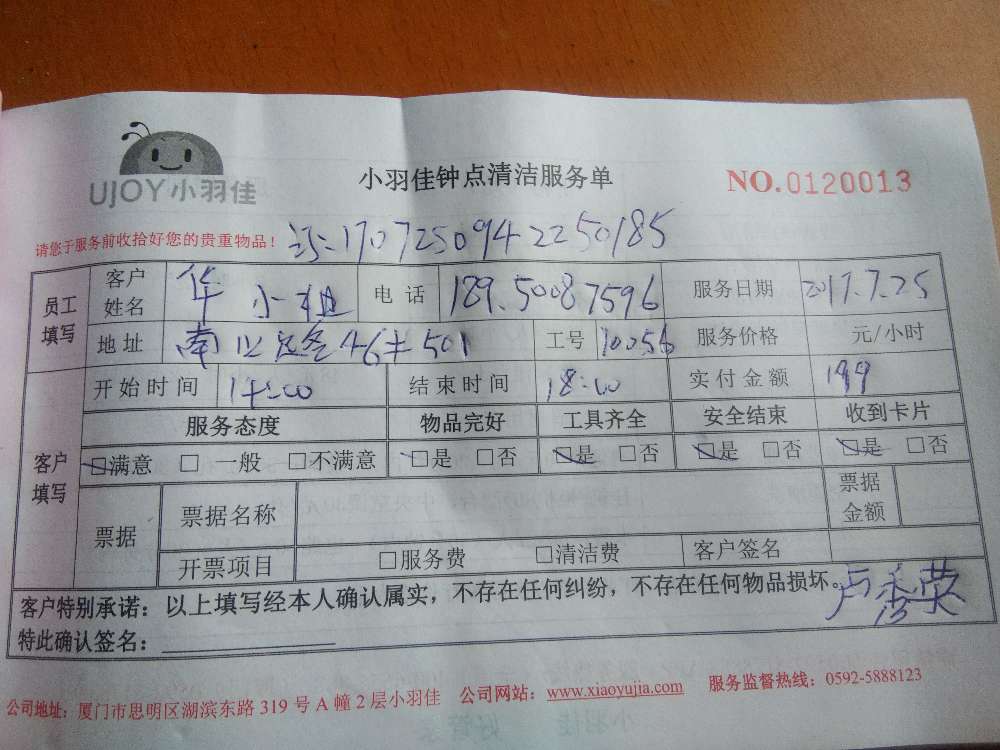 UJOY小羽佳
小羽佳钟点清洁服务单
NO.0120013
请您于服务前收拾好您的贵重物品！
1707250942250185
员工填写 客户姓名 华小姐 电话 189.50087596 服务日期 2017.7.25
地址 南 46# 501 工号 10056 服务价格 元/小时
客户填写 开始时间 14:00 结束时间 18:00 实付金额 199
服务态度 物品完好 工具齐全 安全结束 收到卡片
□满意 □一般 □不满意 □是 □否 □是 □否 □是 □否 □是 □否
票据 票据名称 票据金额
开票项目 □服务费 □清洁费 客户签名
客户特别承诺：以上填写经本人确认属实，不存在任何纠纷，不存在任何物品损坏。
特此确认签名：
公司地址：厦门市思明区湖滨东路 319 号 A 幢 2 层小羽佳 公司网站：www.xiaoyujia.com 服务监督热线：0592-5888123